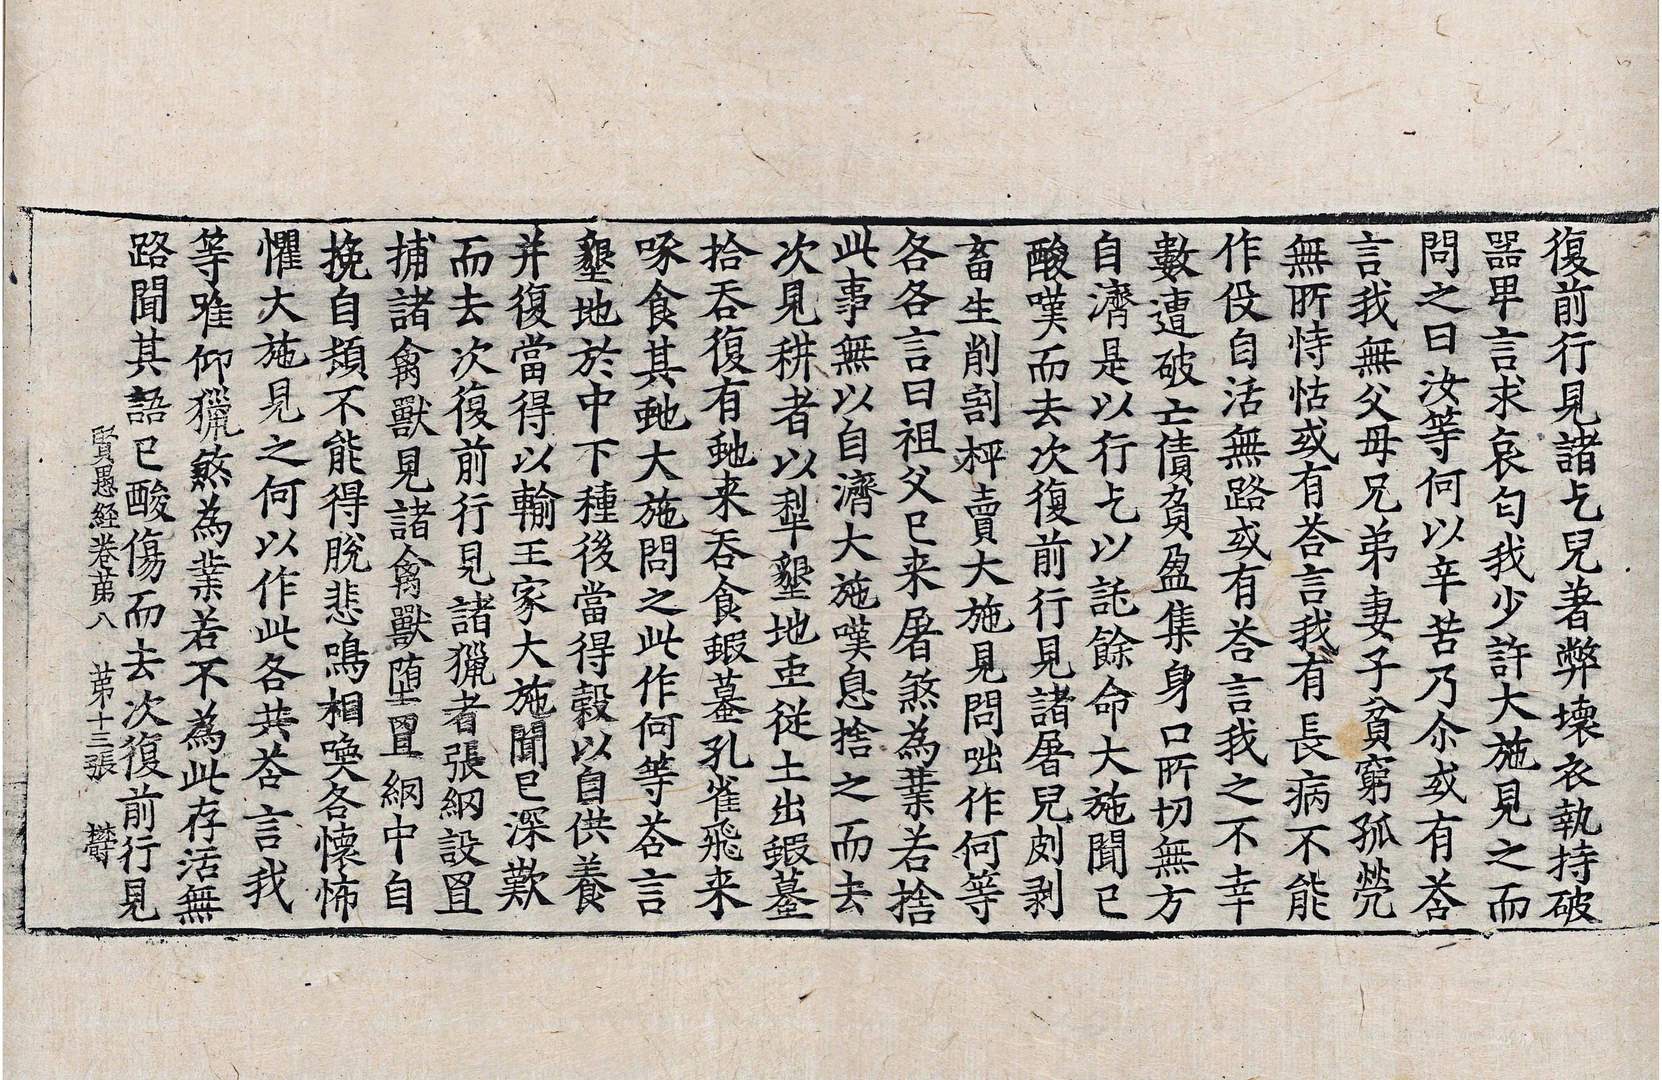 復前行見諸乞兒著弊壞衣執持破
器卑言求哀匃我少許大施見之而
問之曰汝等何以辛苦乃尒或有荅
言我無父母兄弟妻子貧窮孤煢
無所恃怙或有荅言我有長病不能
作役自活無路或有荅言我之不幸
數遭破亡債負盈集身口所切無方
自濟是以行乞以託餘命大施聞已
酸嘆而去次復前行見諸屠兒剠剥
畜生削割枰賣大施見問咄作何等
各各言曰祖父已来屠煞為業若捨
此事無以自濟大施嘆息捨之而去
次見耕者以犁墾地䖝従土出蝦蟇
拾吞復有虵来吞食蝦蟇孔雀飛来
啄食其虵大施問之此作何等荅言
墾地於中下種後當得穀以自供養
并復當得以輸王家大施聞已深歎
而去次復前行見諸獵者張網設罝
捕諸禽獸見諸禽獸堕罝網中自
挽自頓不能得脫悲鳴相喚各懷怖
懼大施見之何以作此各共荅言我
等唯仰獵煞為業若不為此存活無
路聞其語已酸傷而去次復前行見
賢愚經卷苐八 苐十三張 欝